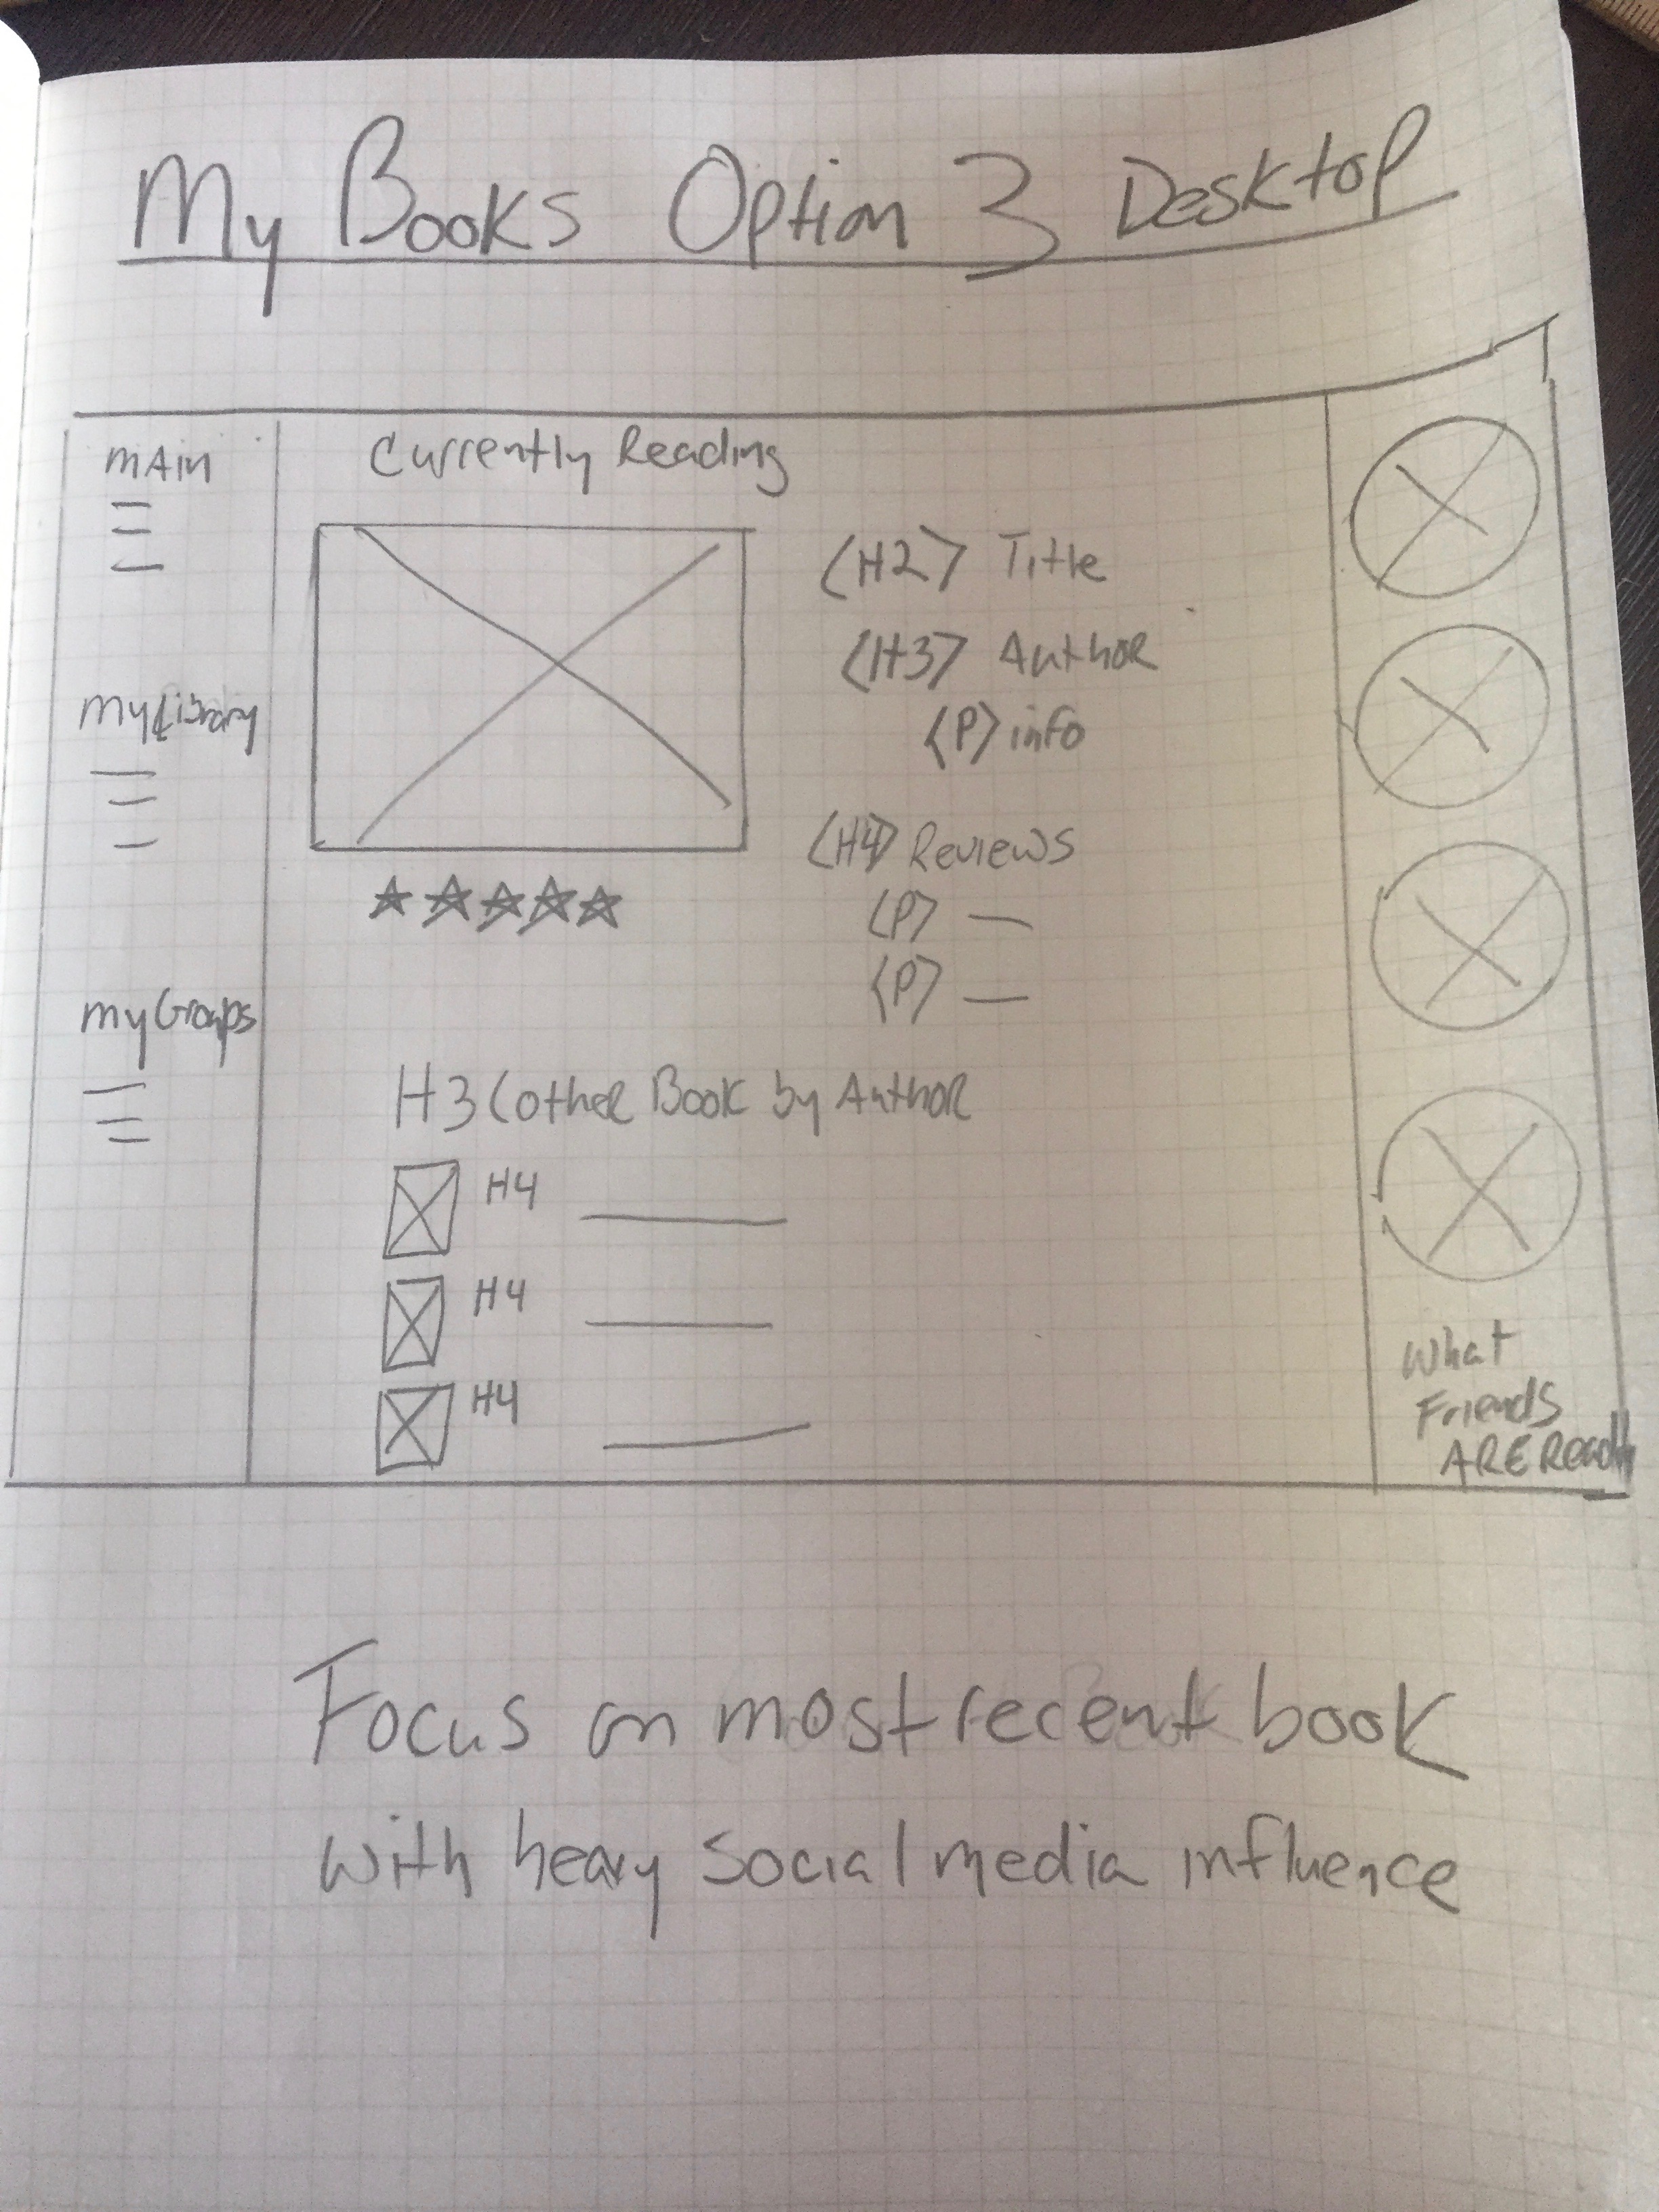 My Books Option 3 Desktop
MAin
My Library
My Groups
Currently Reading
<H2> Title
<H3> Author
<P> info
<H4> Reviews
<P> —
<P> —
H3 (other Book by Author
H4
H4
H4
What
Friends
ARE
Focus on most recent book
with heavy social media influence